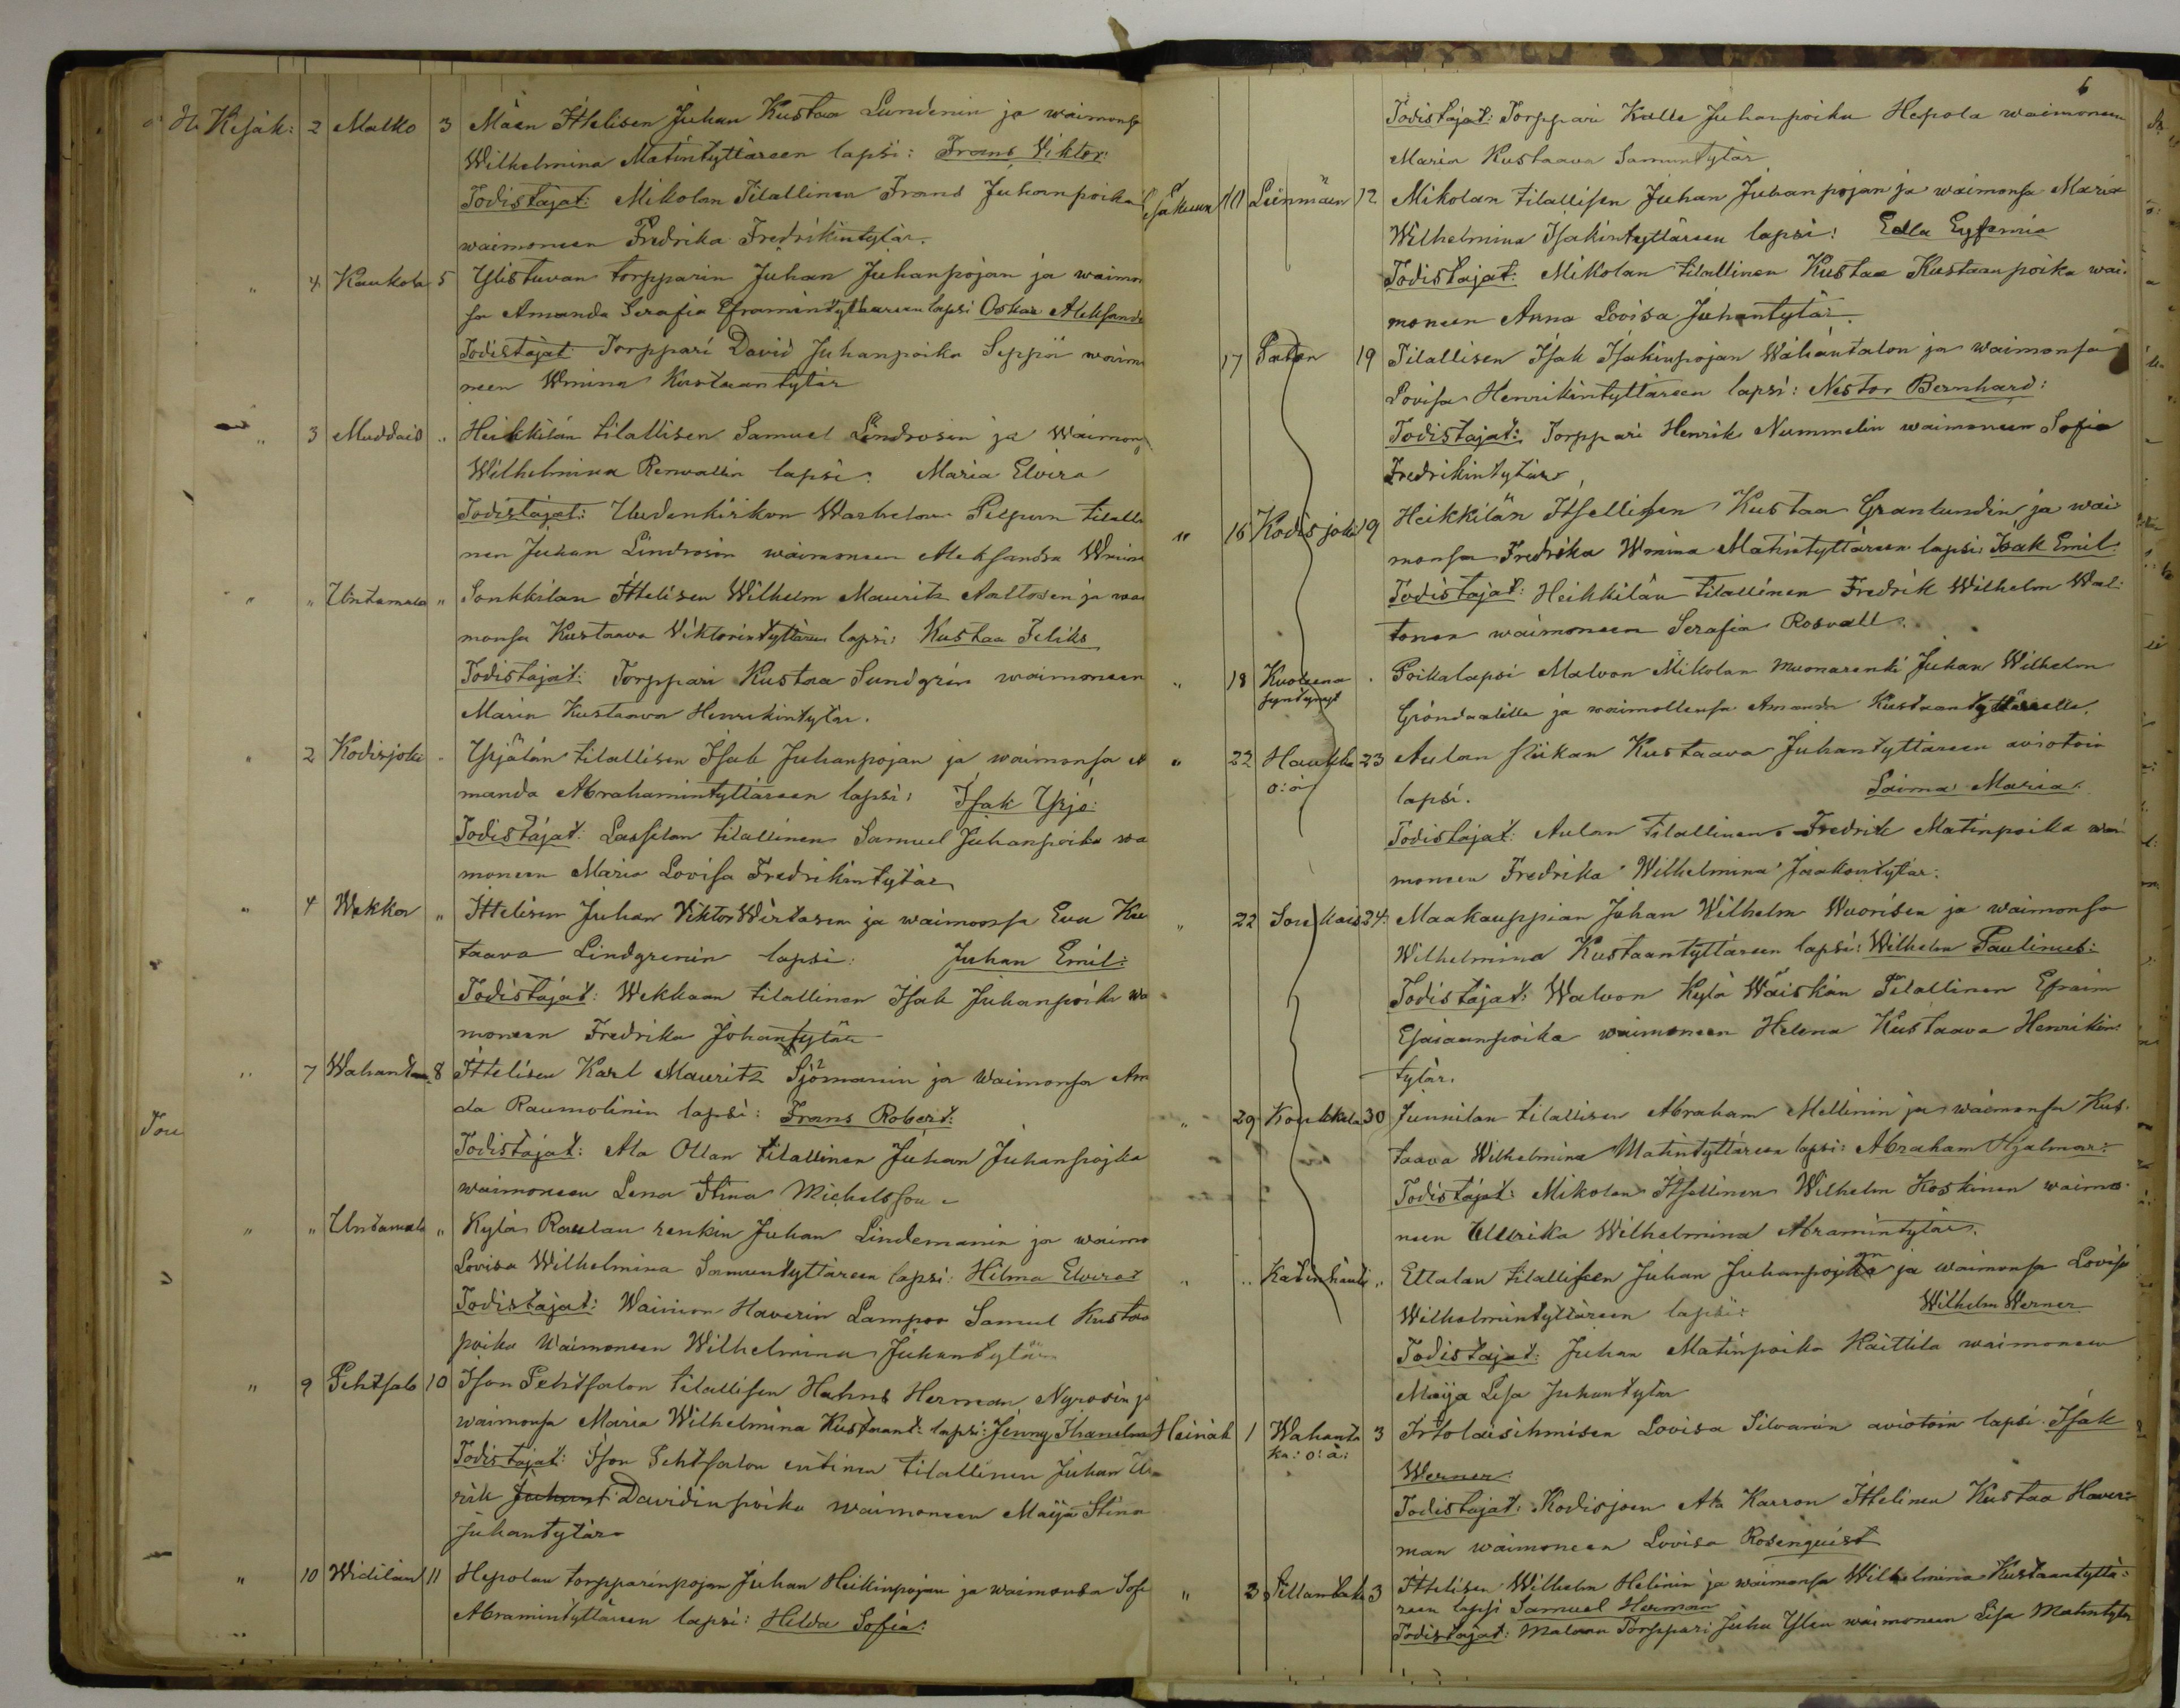 Kesäk: 2 Malko 3 Mäen Ittelisen Juhan Kustaa Lundenin ja waimonsa
Wilhelmina Matintyttäreen lapsi: Frans Viktor:
Todistajat: Mikolan Tilallinen Frans Juhanpoika
waimoneen Fredrika Fredrikintytär.
" 4 Kaukola 5 Ylistuvan torpparin Juhan Juhanpojan ja waimon
sa Amanda Serafia Eframintyttäreen lapsi Oskar Aleksand
Todistajat Torppari David Juhanpoika Seppä waimo
neen Wmina Kustaantytär
" 3 Muddais " Heikkilän tilallisen Samuel Lindrosin ja Waimon
Wilhelmina Renvallin lapsi: Maria Elvira
Todistajat: Uudenkirkon Warhelan Pilpun tilalli
nen Juhan Lindrosin waimoneen Aleksandra Wmina
" " Untamala " Sonkkilan Ittelisen Wilhelm Mauritz Aaltosen ja wai
monsa Kustaava Viktorintyttären lapsi: Kustaa Feliks
Todistajat: Torppari Kustaa Sundgrin waimoneen
Maria Kustaava Henrikintytär.
" 2 Kodisjoki - Yrjälän tilallisen Isak Juhanpojan ja waimonsa A
manda Abrahamintyttäreen lapsi: Isak Yrjö:
Todistajat: Lassilan tilallinen Samuel Juhanpoika wa
moneen Maria Lovisa Fredrikintytär
" 4 Wekkar " Ittelisen Juhan Viktor Wirtasen ja waimonsa Eva Kus
taava Lindgrenin lapsi: Juhan Emil:
Todistajat: Wekkaan tilallinen Isak Juhanpoika wa
moneen Fredrika Johantytär
" 7 Wahant 8 Ittelisen Karl Mauritz Sjömanin ja Waimonsa Am
da Raumolinin lapsi: Frans Robert:
Todistajat: Ala Ollan tilallinen Juhan Juhanpojka
waimoneen Lena Stina Michelsson
" " Untamala " Kylä Raulan renkin Juhan Lindemanin ja waimo
Lovisa Wilhelmina Samuntyttäreen lapsi: Hilma Elvira
Todistajat: Wainion Haverin Lampor Samul Kustaa
poika Waimoneen Wilhelmina Juhantytär
" 9 Pehtsalo 10 Ison Pehtsalon tilallisen Hahns Herman Nyrosin ja
waimonsa Maria Wilhelmina Kustaant: lapsi: Jenny
Todistajat: Ison Pehtsalon entinen tilallinen Juhan Ul
rik Juhant Davidinpoika waimoneen Maija Stina
Juhantytär
" 10 Widilän 11 Hepolan torpparinpojan Juhan Heikinpojan ja waimonsa Sofi
Abramintyttäreen lapsi: Hilda Sofia:
6
Todistajat: Torppari Kalle Juhanpoika Hepola waimoneen
Maria Kustaava Samuntytär
Kesäkuun 11 Leinmäen 12 Mikolan tilallisen Juhan Juhanpojan ja waimonsa Maria
Wilhelmina Isakintyttäreen lapsi: Edla Eyfemia
Todistajat: Mikolan tilallinen Kustaa Kustaanpoika wai-
moneen Anna Lovisa Juhantytär.
17 19 Tilallisen Isak Isakinpojan Wähäntalon ja waimonsa
Lovisa Henrikintyttäreen lapsi: Nestor Bernhard:
Todistajat: Torppari Henrik Nummelin waimoneen Sofia
Fredrikintytär
" 16 Kodisjoki 19 Heikkilän Itsellisen Kustaa Granlundin ja wai
monsa Fredrika Wmina Matintyttäreen lapsi: Isak Emil:
Todistajat: Heikkilän tilallinen Fredrik Wilhelm Wal-
tonen waimoneen Serafia Rosvall.
" 18 Kuolleena syntynyt . Poikalapsi Malvon Mikolan muonarenki Juhan Wilhelm
Gröndaalille ja waimollensa Amanda Kustaantyttärelle.
" 22 Haukka 23 Aulan piikan Kustaava Juhantyttäreen aviotoin
o: ä lapsi. Saima Maria.
Todistajat: Aulan tilallinen Fredrik Matinpoika wai
moneen Fredrika Wilhelmina Jaakontytär.
" 22 Soukais 24 Maakauppian Johan Wilhelm Wuorisen ja waimonsa
Wilhelmina Kustaantyttäreen lapsi: Wilhelm Paulinus:
Todistajat: Walvon Kylä Wäiskän Tilallinen Efraim
Esaiaanpoika waimoneen Helena Kustaava Henrikin-
tytär.
" 29 Koukkela 30 Junnilan tilallisen Abraham Mellinin ja waimonsa Kus-
taava Wilhelmina Matintyttäreen lapsi: Abraham Hjalmar:
Todistajat: Mikolan Itsellinen Wilhelm Koskinen waimo-
neen Ullrika Wilhelmina Abramintytär.
" " Katinhänti " Ettalan tilallisen Juhan Juhanpojan ja waimonsa Lovisa
Wilhelmintyttäreen lapsi: Wilhelm Werner
Todistajat: Juhan Matinpoika Haittila waimoneen
Maija Lisa Juhantytär
Heinäk 1 Wahanta 3 Irtolaisihmisen Lovisa Silvanin aviotoin lapsi Isak
ka: o: ä: Werner:
Todistajat: Kodisjoen Ala Karron Ittelinen Kustaa Haver-
man waimoneen Lovisa Rosenquist
" 3 3 Ittelisen Wilhelm Helinin ja waimonsa Wilhelmina Kustaantyttä-
reen lapsi Samuel Herman
Todistajat: Malvon Torppari Juha Ylen waimoneen Lisa Matintytär